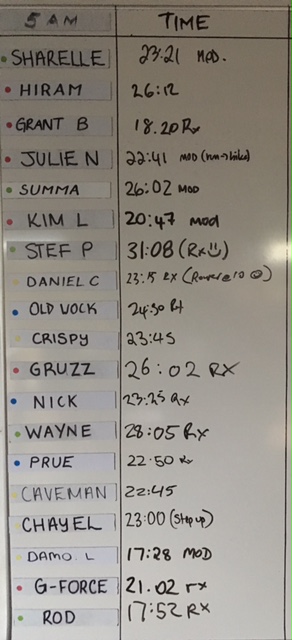 5 AM TIME
SHARELLE 23:21 MOD.
HIRAM 26:12
GRANT B 18.20 Rx
JULIE N 22:41 MOD (run->bike)
SUMMA 26:02 MOD
KIM L 20:47 mod
STEF P 31:08 (Rx☺)
DANIEL C 23:15 RX (Rower @ 10 ☹)
OLD WOCK 24:30 RX
CRISPY 23:45
GRUZZ 26:02 RX
NICK 23:25 Rx
WAYNE 28:05 RX
PRUE 22.50 Rx
CAVEMAN 22:45
CHAYEL 23:00 (Step up)
DAMO. L 17:28 MOD
G-FORCE 21.02 rx
ROD 17:52 RX